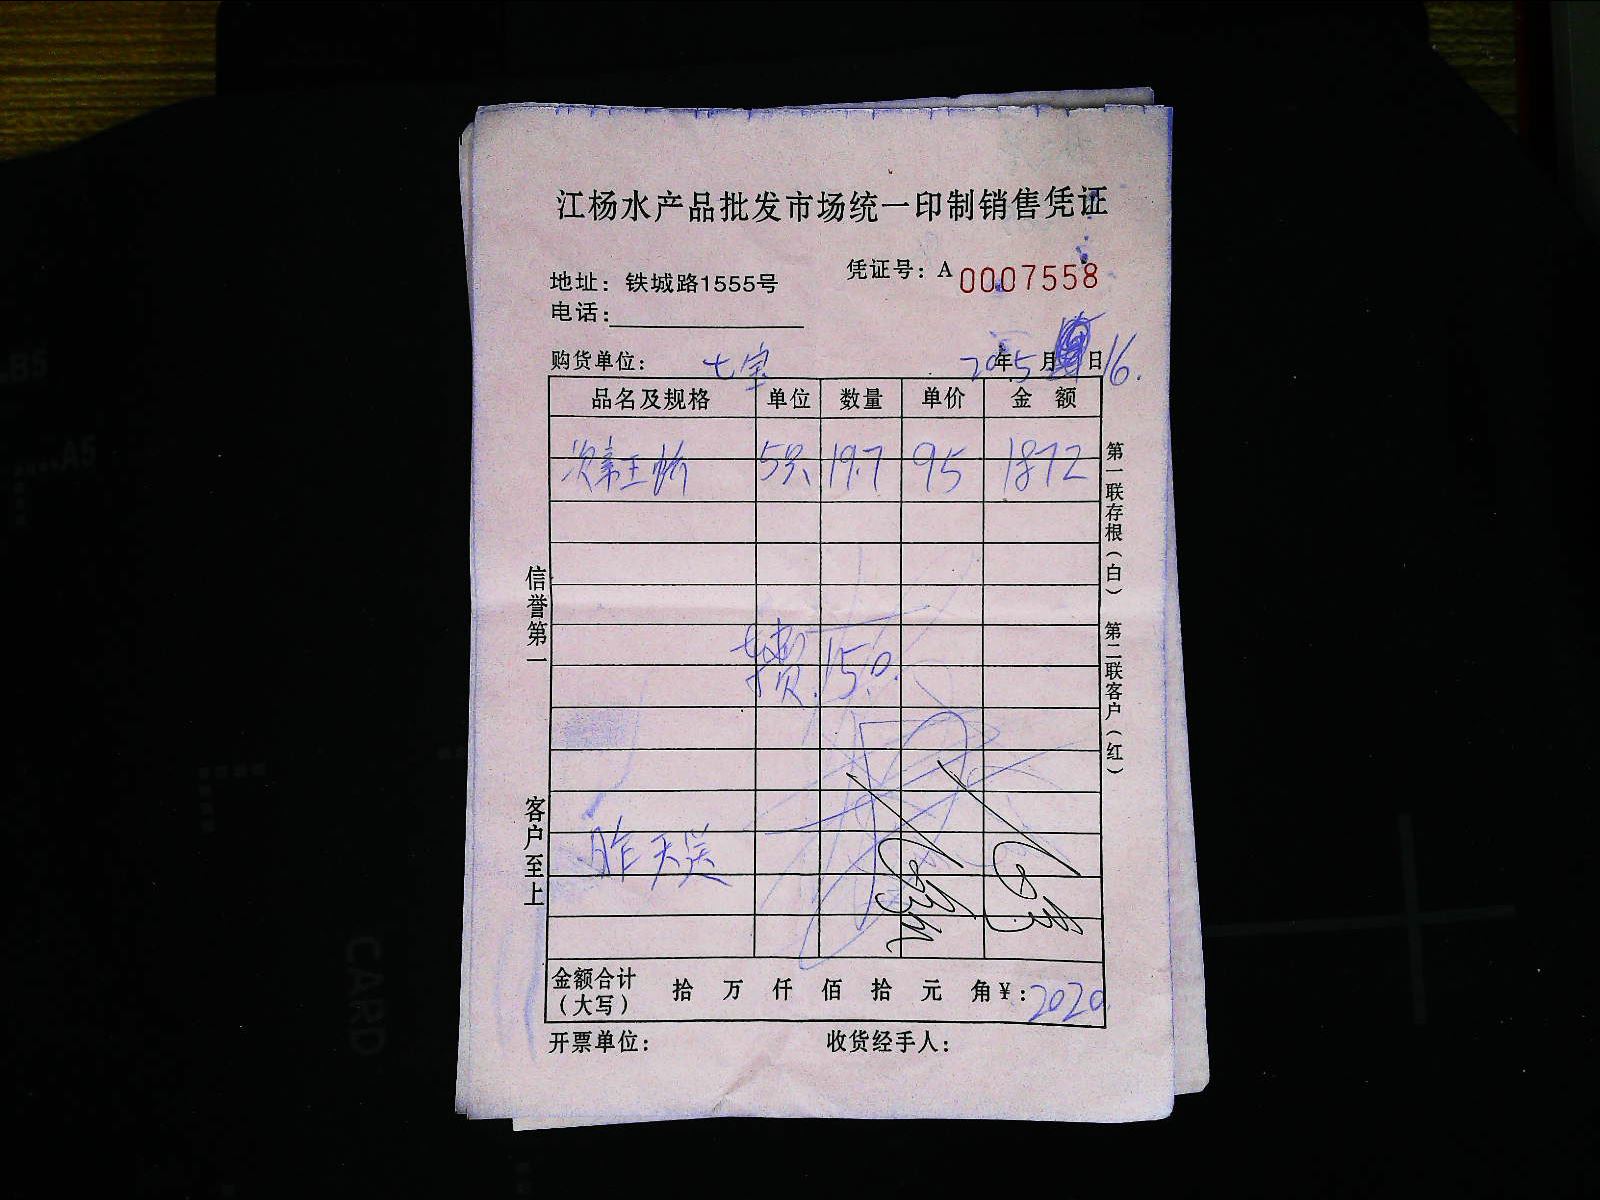 江杨水产品批发市场统一印制销售凭证
凭证号：A 0007558
地址：铁城路1555号
电话：
购货单位： 七宝 20年5月日16.
品名及规格 单位 数量 单价 金额
王 5只 19.7 95 1872
费.150.
昨天送
金额合计（大写） 拾 万 仟 佰 拾 元 角 ¥：2020
开票单位： 收货经手人：
信誉第一 客户至上
第一联存根（白） 第二联客户（红）
CARD
A5
B5